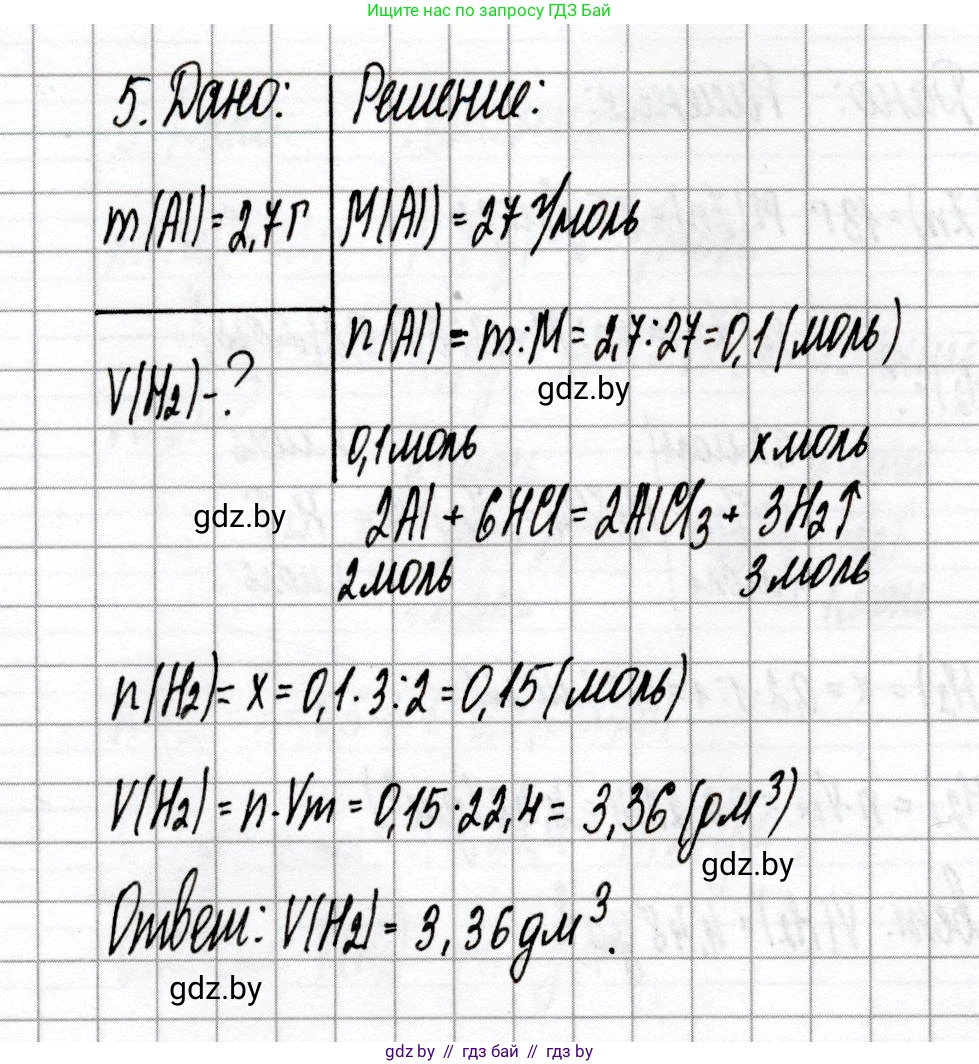 Ищите нас по запросу ГДЗ Бай
5. Дано:
Решение:
m(Al)=2,7г
M(Al)=27 г/моль
n(Al)=m:M=2,7:27=0,1(моль)
gdz.by
V(H₂)-?
0,1моль xмоль
gdz.by
2Al+6HCl=2AlCl₃+3H₂↑
2моль 3моль
n(H₂)=x=0,1·3:2=0,15(моль)
V(H₂)=n·Vm=0,15·22,4=3,36(дм³)
gdz.by
Ответ: V(H₂)=3,36дм³.
gdz.by
gdz.by // гдз бай // гдз by